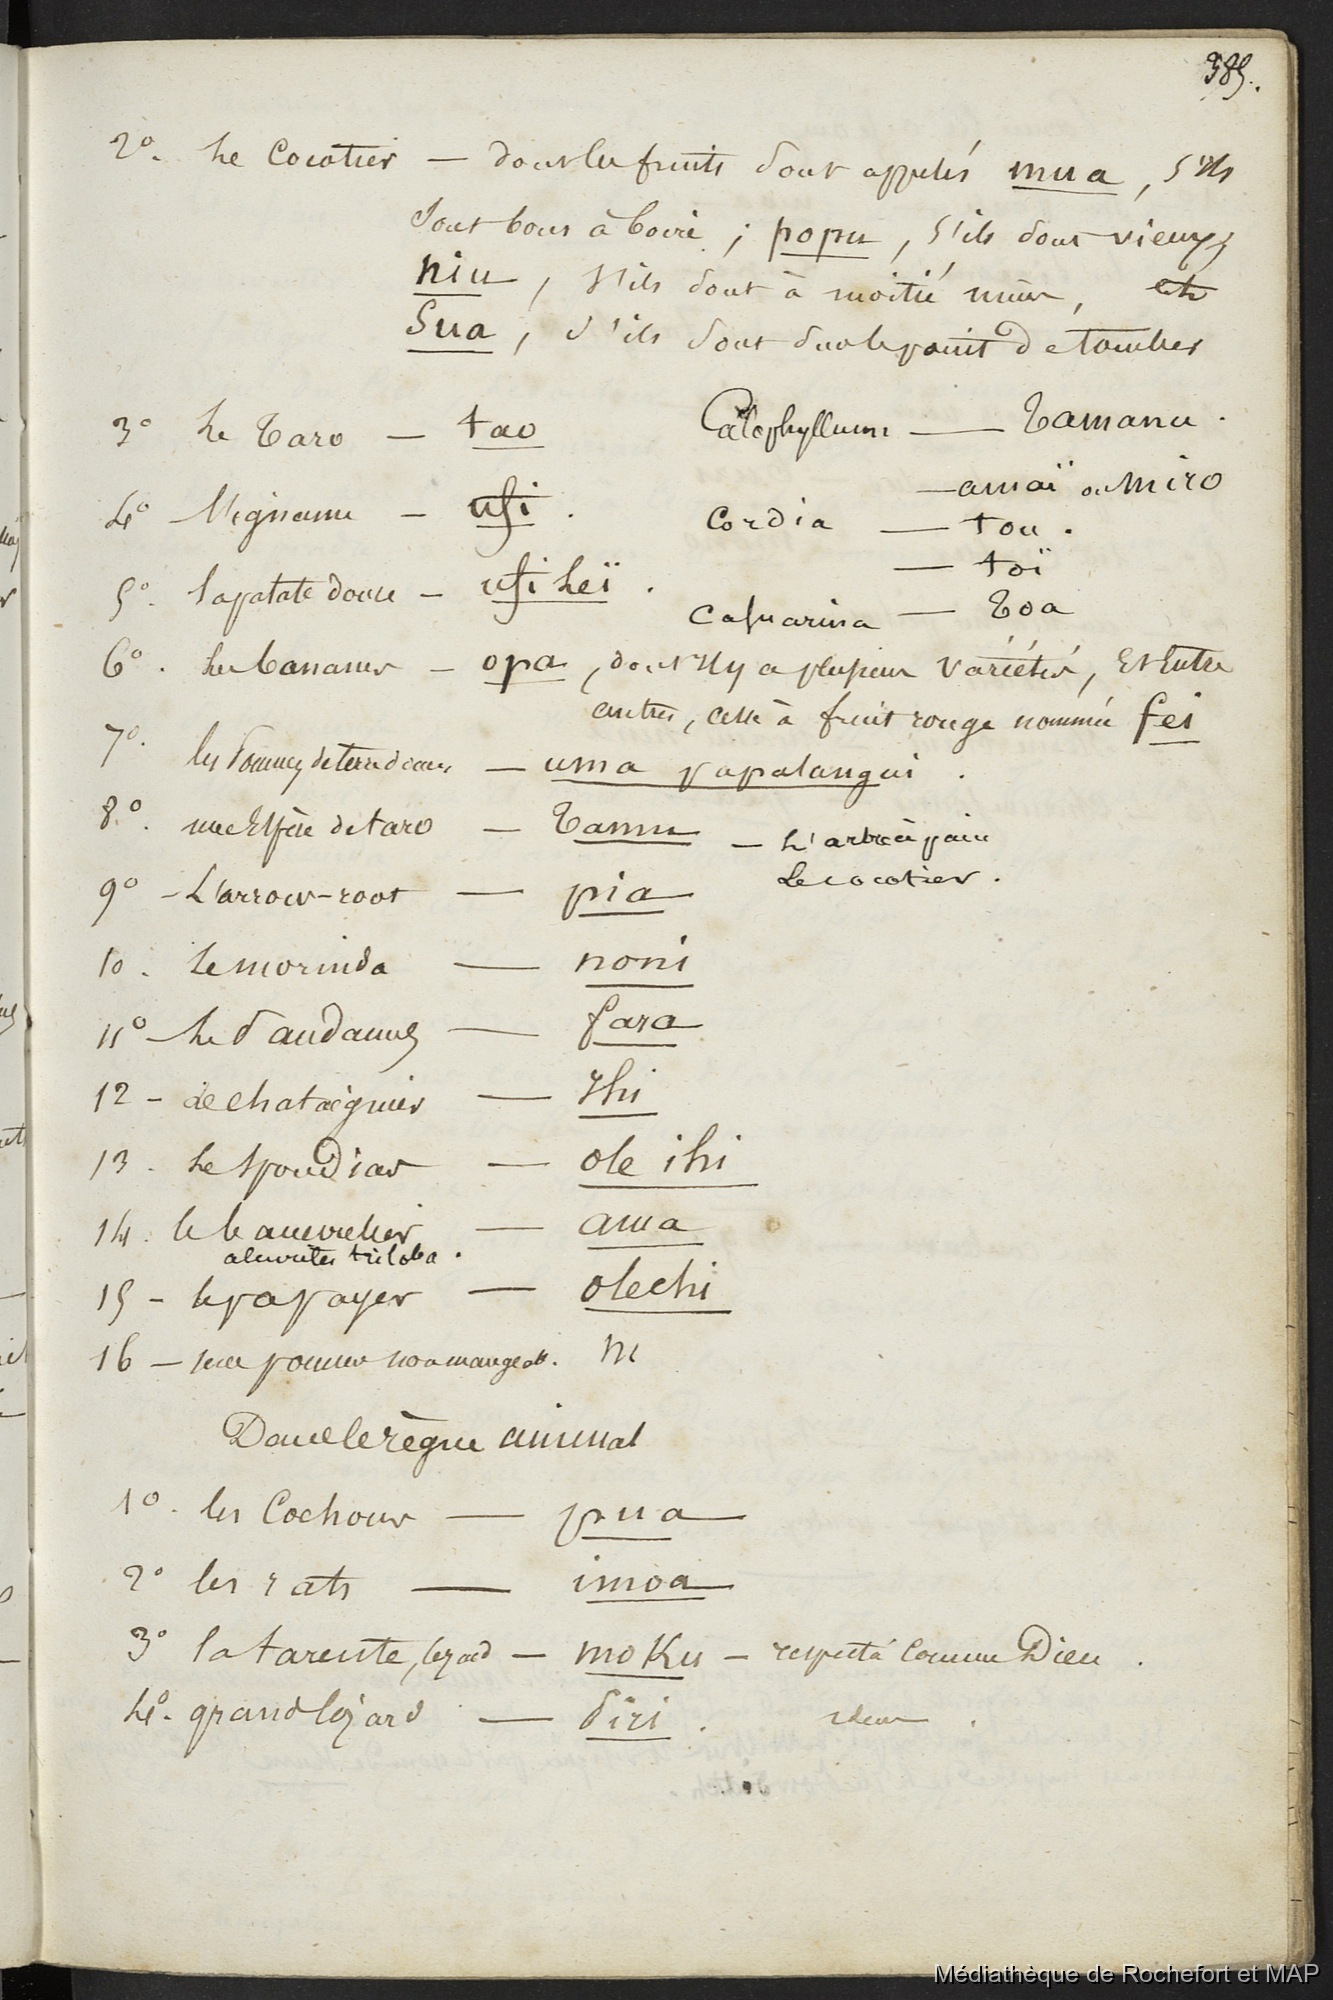 385.
2º. Le Cocotier — dont les fruits sont appelés mua, s'ils
sont bons à boire ; popu, s'ils sont vieux ;
niu, s'ils sont à moitié mûrs, et
sua, s'ils sont sur le point de tomber
3º Le Taro — tao
Calophyllum — Tamanu.
— amaï ou miro
4º — l'igname — ufi.
Cordia — tou.
— toï
5º. la patate douce — ufi leï.
Casuarina — Toa
6º. les bananes — opa, dont il y a plusieurs variétés, et entre
autres, celle à fruit rouge nommée fei
7º. les pommes de terre douces — uma papalangui.
8º. une espèce de taro — Tamu — L'arbre à pain
Le cocotier.
9º — L'arrow-root — pia
10. le morinda — noni
11º — Le Pandanus — fara
12 — le chataignier — Ihi
13. le spondias — ole ihi
14. le bancoulier — ama
aleurites triloba.
15 — le papayer — olechi
16 — une pomme non mangeab.
Dans le règne animal
1º. les Cochons — pua
2º les rats — imoa
3º la tarente, lézard — moku — respecté comme Dieu.
4º. grand lézard — piri. idem.
Médiathèque de Rochefort et MAP